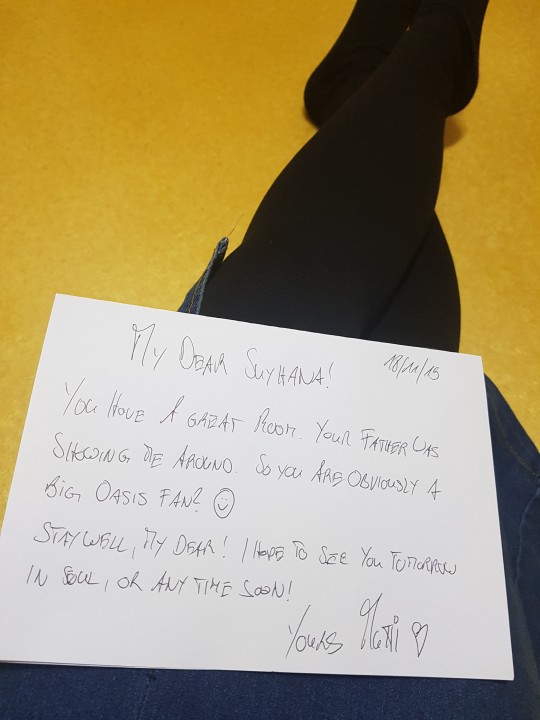 My Dear Suyhana! 18/11/15
You have a great room. Your father was
showing me around. So you are obviously a
big Oasis fan? ☺
Stay well, my dear! I hope to see you tomorrow
in Seoul, or any time soon!
Yours Matti ♡